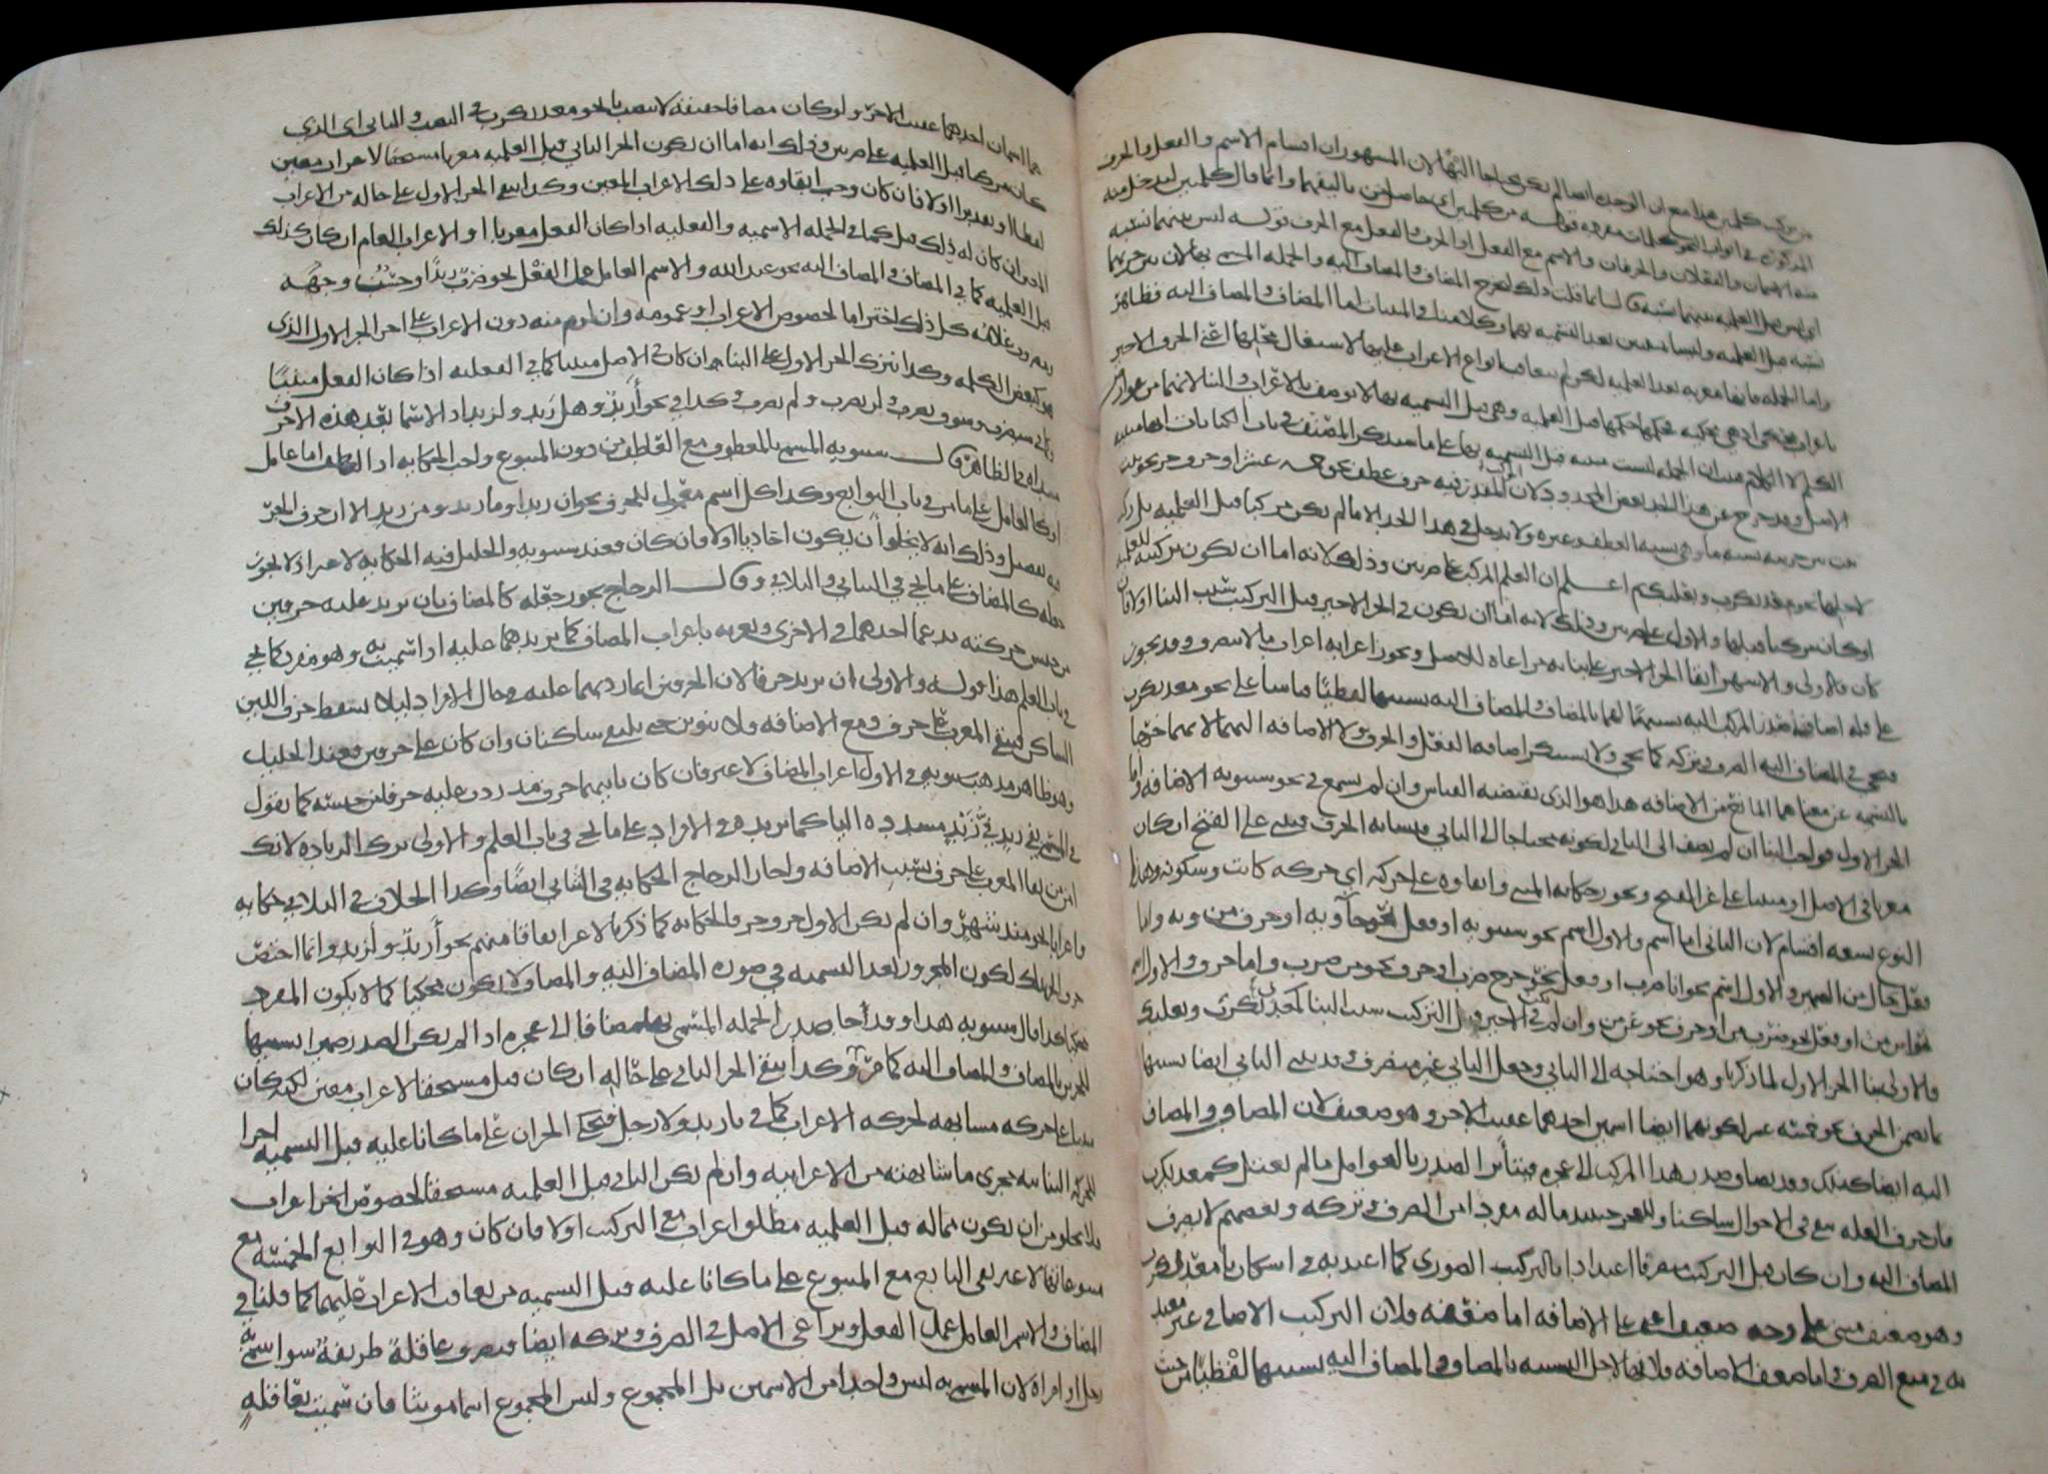 من تركيب كلمتين هذا مع ان الوحدة ايضا لم يكن محتاجا اليها لان المشهور ان اقسام الاسم والفعل والحرف
المذكورة في ابواب النحو كلمات مفردة قوله من كلمتين اي حاصل من تاليفهما وانما قال كلمتين ليدخل فيه
الاسمان والفعلان والحرفان والاسم مع الفعل او الحرف والفعل مع الحرف قوله ليس بينهما نسبة
اي ليس قبل العلمية بينهما نسبة قال انما قلت ذلك ليخرج المضاف والمضاف اليه والجملة المسمى بها لان بين جزئيهما
نسبة قبل العلمية وليسا مبنيين بعد التسمية بهما وكلامنا في المبنيات اما المضاف والمضاف اليه فظاهر
واما الجملة فانها معربة بعد العلمية لكن لم يتعاقب انواع الاعراب عليها لاشتغال محلها اعني الحرف الاخير
الكلم لا الكلام الجملة ليست مبنية قبل التسمية بها على ما سيذكر المصنف في باب الكنايات انها مبنية
الاصل وقد خرج عن هذا الحد بعض المحدود لان المقدر فيه حرف عطف نحو خمسة عشر او حرف جر نحو بين
بين بين جزئيه نسبة ما وهي نسبة العطف وغيره ولا يدخل في هذا الحد الا ما لم يكن مركبا قبل العلمية بل ركب
لاجلها نحو معديكرب وبعلبك اعلم ان العلم المركب على ضربين وذلك لانه اما ان يكون تركيبه للعلمية
او كان مركبا قبلها والاول على ضربين وذلك لانه اما ان يكون في الجزء الاخير قبل التركيب سبب البناء اولا فان
كان فالاولى والاشهر ابقاء الجزء الاخير على بنائه مراعاة للاصل ويجوز اعرابه اعراب ما لا ينصرف وقد يجوز
على قلة اضافة صدر المركب اليه تشبيها لهما بالمضاف والمضاف اليه تشبيها لفظيا قياسا على نحو معديكرب
فيجيء في المضاف اليه الصرف وتركه كما يجيء ولا يستنكر اضافة الفعل والحرف ولا الاضافة اليهما لانهما خرجا
بالتسمية عن معناهما المانع من الاضافة هذا هو الذي يقتضيه القياس وان لم يسمع في نحو سيبويه الاضافة واما
الجزء الاول فواجب البناء ان لم يضف الى الثاني لكونه محتاجا الى الثاني فيشابه الحرف فيبنى على الفتح ان كان
معربا في الاصل او مبنيا على غير الفتح ويجوز حكاية المبني وابقاؤه على حركته اي حركة كانت وسكونه وهذا
النوع تسعة اقسام لان الثاني اما اسم والاول اسم نحو سيبويه او فعل نحو جا ويه او حرف نحو من ويه واما
فعل خال من الضمير والاول اسم نحو انا ضرب او فعل نحو خرج ضرب او حرف نحو من ضرب واما حرف والاول اسم
نحو اين من او فعل نحو ضرب من او حرف نحو عن من وان لم يكن في الاخير قبل التركيب سبب البناء كمعديكرب وبعلبك
فالاولى بناء الجزء الاول لما ذكرنا وهو احتياجه الى الثاني وجعل الثاني غير منصرف وقد يبنى الثاني ايضا تشبيها
بما تضمن الحرف نحو خمسة عشر لكونهما ايضا اسمين احدهما عقيب الاخر وهو ضعيف لان المضاف والمضاف
اليه ايضا كذلك وقد يضاف صدر هذا المركب الى عجزه فيتأثر الصدر بالعوامل ما لم يعتل كمعديكرب
فان حرف العلة يبقى في الاحوال ساكنا وللعجز حينئذ ما له مفردا من الصرف وتركه وبعضهم لا يصرف
المضاف اليه وان كان قبل التركيب منصرفا اعتدادا بالتركيب الصوري كما اعتد به في اسكان يا معديكرب
وهو ضعيف مبني على وجه ضعيف اعني على الاضافة اما ضعفه فلان التركيب الاضافي غير معتد
به في منع الصرف واما ضعف الاضافة فلانها لاجل التشبيه بالمضاف والمضاف اليه تشبيها لفظيا من حيث
هما اسمان احدهما عقيب الاخر ولو كان مضافا حقيقة لانتصب يا نحو معديكرب في النصب والثاني اي الذي
كان مركبا قبل العلمية على ضربين وذلك انه اما ان يكون الجزء الثاني قبل العلمية معربا مستحقا لاعراب معين
لفظا او تقديرا اولا فان كان وجب ابقاؤه على ذلك الاعراب المعين وكذا يبقى الجزء الاول على حاله من الاعراب
المعين ان كان له ذلك قبل كما في الجملة الاسمية والفعلية اذا كان الفعل معربا او الاعراب العام ان كان كذلك
قبل العلمية كما في المضاف والمضاف اليه نحو عبد الله والاسم العامل عمل الفعل نحو ضارب زيدا وحسن وجهه
ومضروب غلامه كل ذلك احتراما لخصوص الاعراب او عمومه وان لزم منه دوران الاعراب على اخر الجزء الاول الذي
هو كبعض الكلمة وكذا يترك الجزء الاول على البناء ان كان في الاصل مبنيا كما في الفعلية اذا كان الفعل مبنيا
وكما في سيضرب وسوف يضرب ولن يضرب ولم يضرب وكذا في نحو أزيد وهل زيد ولزيد اذ الاسماء بعد هذه الاحرف
مبتدأة في الظاهر قال سيبويه المسمى بالمعطوف مع العاطف من دون المتبوع واجب الحكاية اذ العاطف اما عامل
او كالعامل على ما مر في باب التوابع وكذا كل اسم معمول للحرف نحو ان زيدا وما زيد ومن زيد الا ان حرف الجر
فيه تفصيل وذلك انه لا يخلو أن يكون احاديا اولا فان كان فعند سيبويه والخليل فيه الحكاية لا غير اذ لا يجوز
جعله كالمضاف على ما يجيء في الثنائي والثلاثي وقال الزجاج يجوز جعله كالمضاف بان تزيد عليه حرفين
من جنس حركته مدغما احدهما في الاخرى وتعربه باعراب المضاف كما تزيدهما عليه اذا سميت به وهو مفرد كما يجيء
في باب العلم هذا قوله والاولى ان تزيد حرفا لان الحرفين انما زدتهما عليه في حال الافراد ليلا يسقط حرف اللين
الساكن فيبقى المعرب على حرف ومع الاضافة ولا تنوين حتى يلتقي ساكنان وان كان على حرفين فعند الخليل
وهو ظاهر مذهب سيبويه في الاول اعراب المضاف لا غير فان كان ثانيهما حرف مد زدت عليه حرفا من جنسه كما تقول
في المسمى بفي زيد فيُّ زيدٍ مشددة الياء كما تزيد في الافراد على ما يجيء في باب العلم والاولى ترك الزيادة لانك
امن من بقاء المعرب على حرف بسبب الاضافة واجاز الزجاج الحكاية في الثنائي ايضا وكذا الخلاف في الثلاثي حكاية
واعرابا نحو منذ شهر وان لم يكن الاول حرف جر فالحكاية كما ذكرنا لا غير اتفاقا منهم نحو أزيد ولزيد وانما اختص
حرف الجر بذلك لكون المجرور بعد التسمية في صورة المضاف اليه والمضاف لا يكون محكيا كما لا يكون المفرد
محكيا كذا قال سيبويه هذا وقد جا صدر الجملة المسمى بها مضافا الى عجزه اذا لم يكن الصدر ضميرا تشبيها
للجزئين بالمضاف والمضاف اليه كما مر وكذا يبقى الجزء الثاني على حاله ان كان قبل مستحقا لاعراب معين لكنه كان
مبنيا على حركة مشابهة لحركة الاعراب كما في يا زيد ولا رجل فيحكى الجزان على ما كانا عليه قبل التسمية اجراء
للحركة البنائية مجرى ما شابهته من الاعرابية وان لم يكن الثاني قبل العلمية مستحقا لخصوص اخر اعراب
فلا يخلو من ان يكون مما له قبل العلمية مطلق اعراب مع التركيب اولا فان كان وهو في التوابع الخمسة مع
متبوعاتها لا غير بقي التابع مع المتبوع على ما كانا عليه قبل التسمية من تعاقب الاعراب عليهما كما قلنا في
المضاف والاسم العامل عمل الفعل ويراعى الاصل في الصرف وتركه ايضا فيصرف عاقلة ظريفة سواء سمي به
رجل او امراة لان المسمى به ليس واحدا من الاسمين بل المجموع وليس المجموع اسما مونثا فان سميت بعاقلة